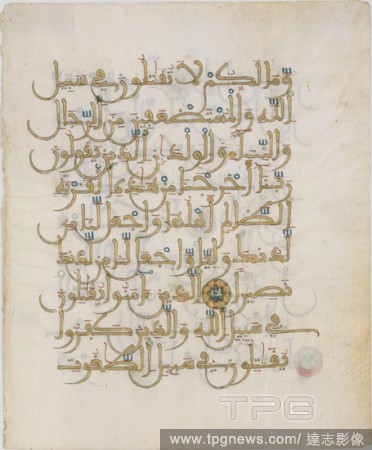 وما لكم لا تقتلون في سبيل
الله والمستضعفين من الرجال
والنساء والولدن الذين يقولون
ربنا أخرجنا من هذه القرية
الظالم أهلها واجعل لنا من
لدنك وليا واجعل لنا من لدنك
نصيرا الذين ءامنوا يقتلون
في سبيل الله والذين كفروا
يقتلون في سبيل الطغوت
TPG
www.tpgnews.com/ 達志影像